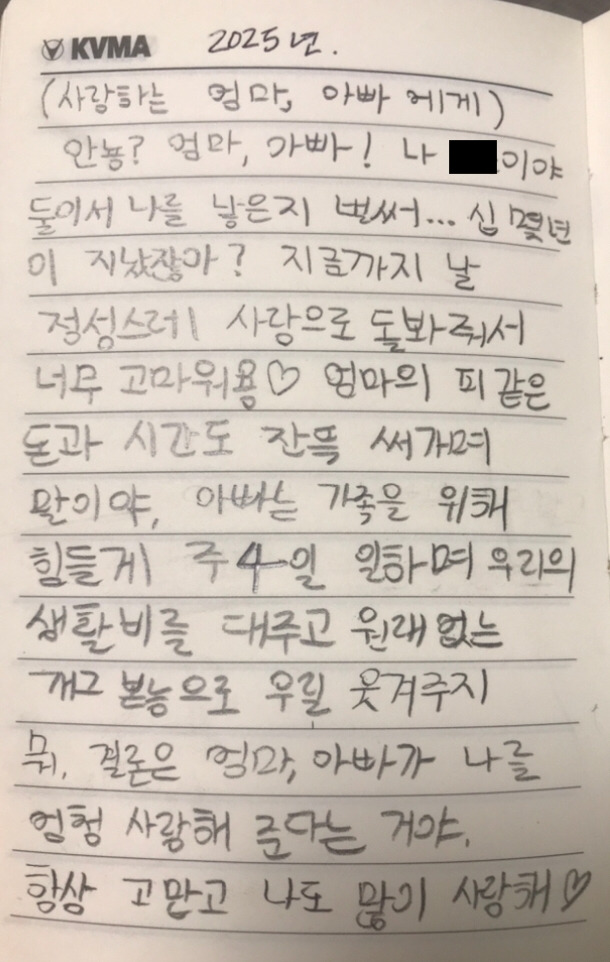 KVMA 2025년.
(사랑하는 엄마, 아빠 에게)
안뇽? 엄마, 아빠! 나 이야
둘이서 나를 낳은지 벌써... 십 몇년
이 지났잖아? 지금까지 날
정성스레 사랑으로 돌봐줘서
너무 고마워용♡ 엄마의 피 같은
돈과 시간도 잔뜩 써가며
말이야, 아빠는 가족을 위해
힘들게 주4일 일하며 우리의
생활비를 대주고 원래 없는
개그 본능으로 우릴 웃겨주지
뭐, 결론은 엄마, 아빠가 나를
엄청 사랑해 준다는 거야.
항상 고맙고 나도 많이 사랑해♡